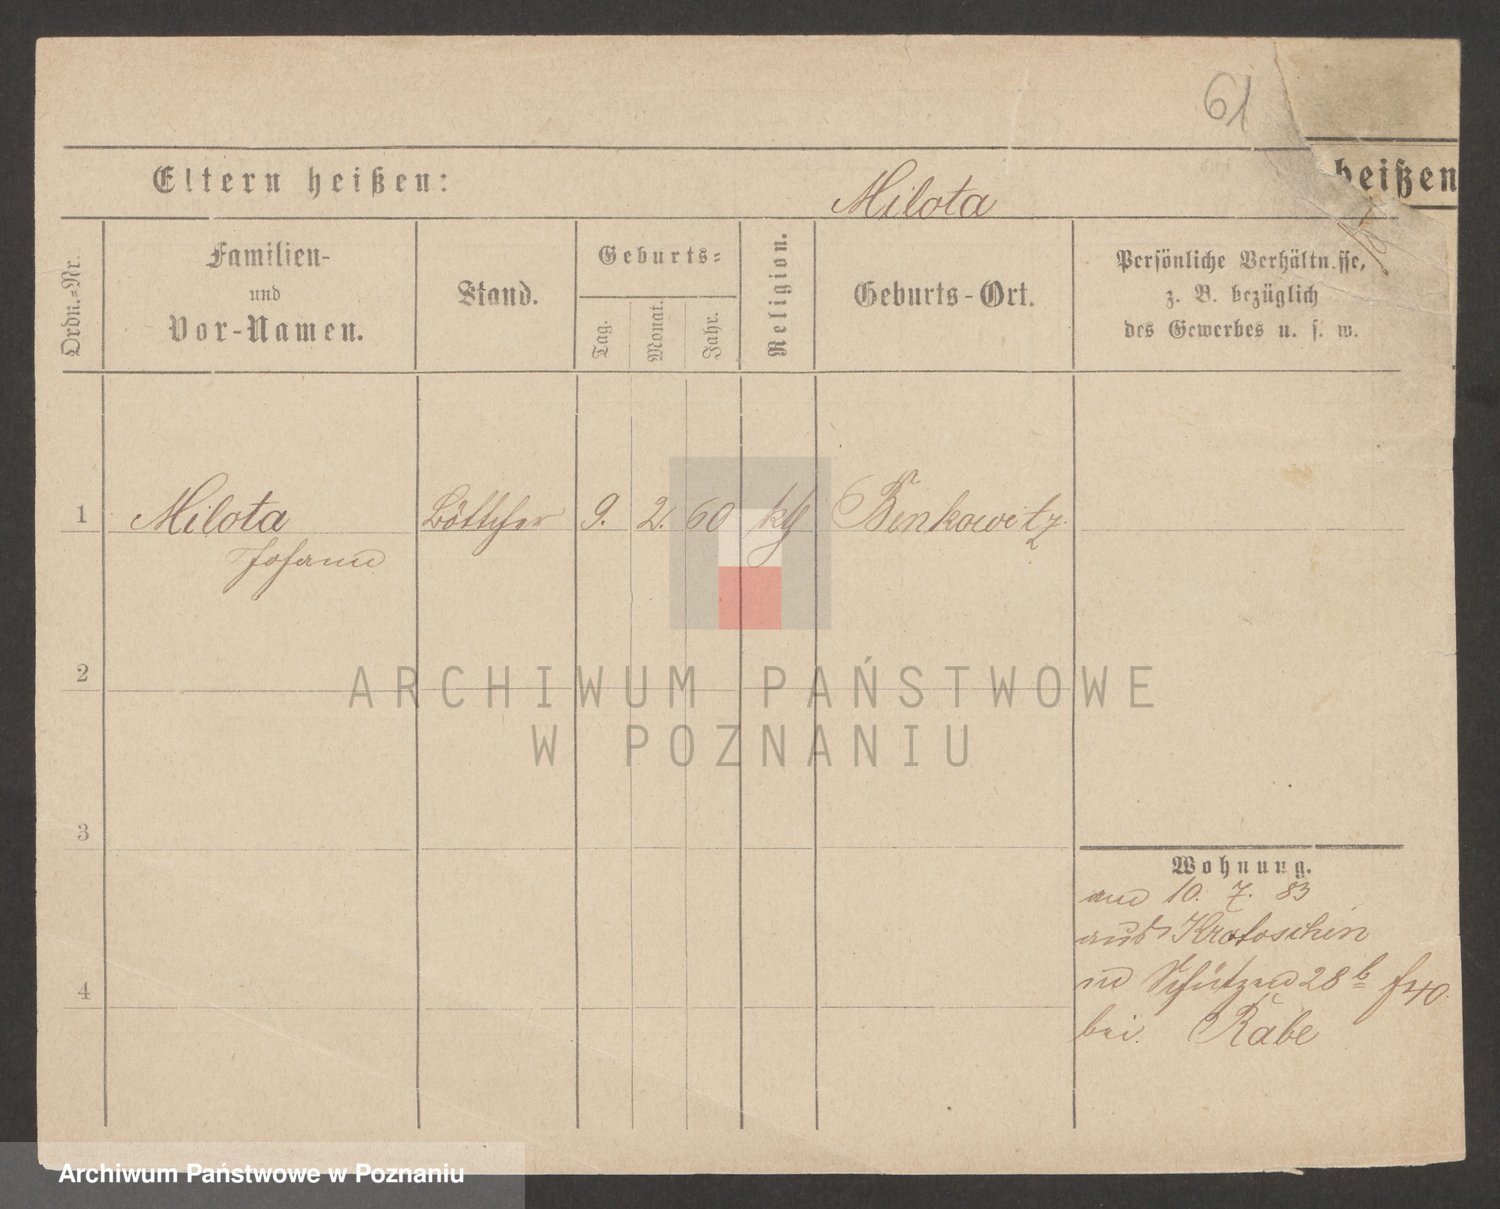 61
Eltern heißen:
heißen
Milota
Ordn.=Nr.
Familien-
und
Vor-Namen.
Stand.
Geburts=
Tag.
Monat.
Jahr.
Religion.
Geburts-Ort.
Persönliche Verhältnisse,
z. B. bezüglich
des Gewerbes u. s. w.
1 Milota Böttcher 9. 2. 60 kth Benkowitz.
Johann
2
ARCHIWUM PAŃSTWOWE
W POZNANIU
3
Wohnung.
10. 7. 83
aus Krotoschin
Schützen 28 b
4
bei. Rabe
Archiwum Państwowe w Poznaniu